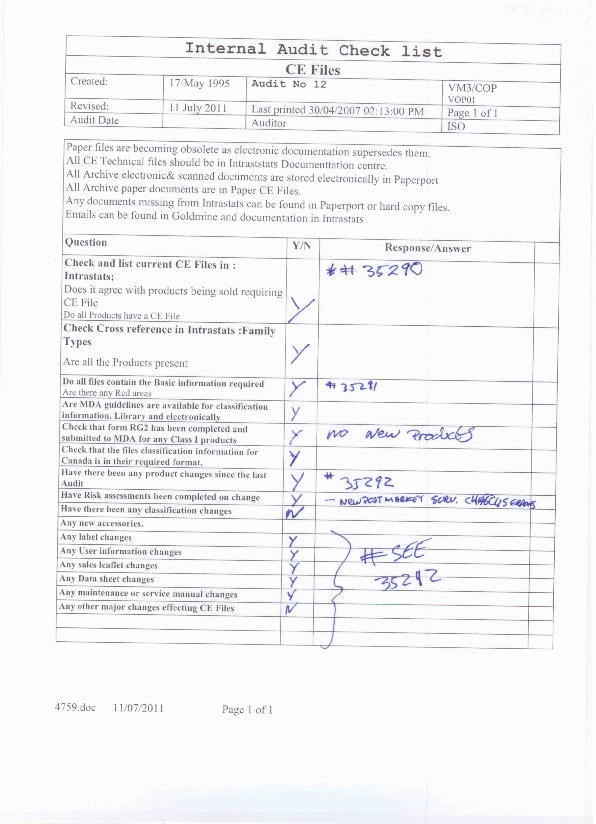 Internal Audit Check list
CE Files
Created: 17/May 1995 Audit No 12 VM3/COP
VOP01
Revised: 11 July 2011 Last printed 30/04/2007 02:13:00 PM Page 1 of 1
Audit Date Auditor ISO
Paper files are becoming obsolete as electronic documentation supersedes them.
All CE Technical files should be in Intraststats Documenttation centre.
All Archive electronic& scanned documents are stored electronically in Paperport
All Archive paper documents are in Paper CE Files.
Any documents missing from Intrastats can be found in Paperport or hard copy files.
Emails can be found in Goldmine and documentation in Intrastats
Question Y/N Response/Answer
Check and list current CE Files in : ## 35290
Intrastats;
Does it agree with products being sold requiring
CE File Y
Do all Products have a CE File
Check Cross reference in Intrastats :Family
Types Y
Are all the Products present
Do all files contain the Basic information required Y # 35291
Are there any Red areas
Are MDA guidelines are available for classification Y
information. Library and electronically
Check that form RG2 has been completed and Y no new Products
submitted to MDA for any Class I products
Check that the files classification information for Y
Canada is in their required format.
Have there been any product changes since the last Y # 35292
Audit
Have Risk assessments been completed on change Y - NEW POST MARKET SURV.
Have there been any classification changes N
Any new accessories.
Any label changes Y
Any User information changes Y # SEE
Any sales leaflet changes Y
Any Data sheet changes Y 35292
Any maintenance or service manual changes Y
Any other major changes effecting CE Files N
4759.doc 11/07/2011 Page 1 of 1